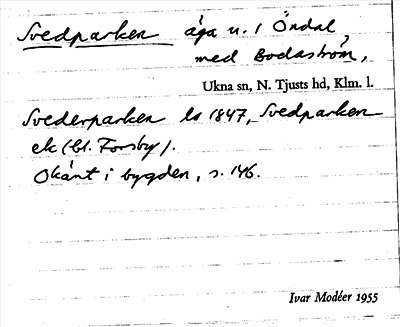 Svedparken äga u. 1 Öndal,
med Bodaström,
Ukna sn, N. Tjusts hd, Klm. l.
Svederparken ls 1847, Svedparken
ek (bl. Forsby).
Okänt i bygden, s. 146.
Ivar Modéer 1955